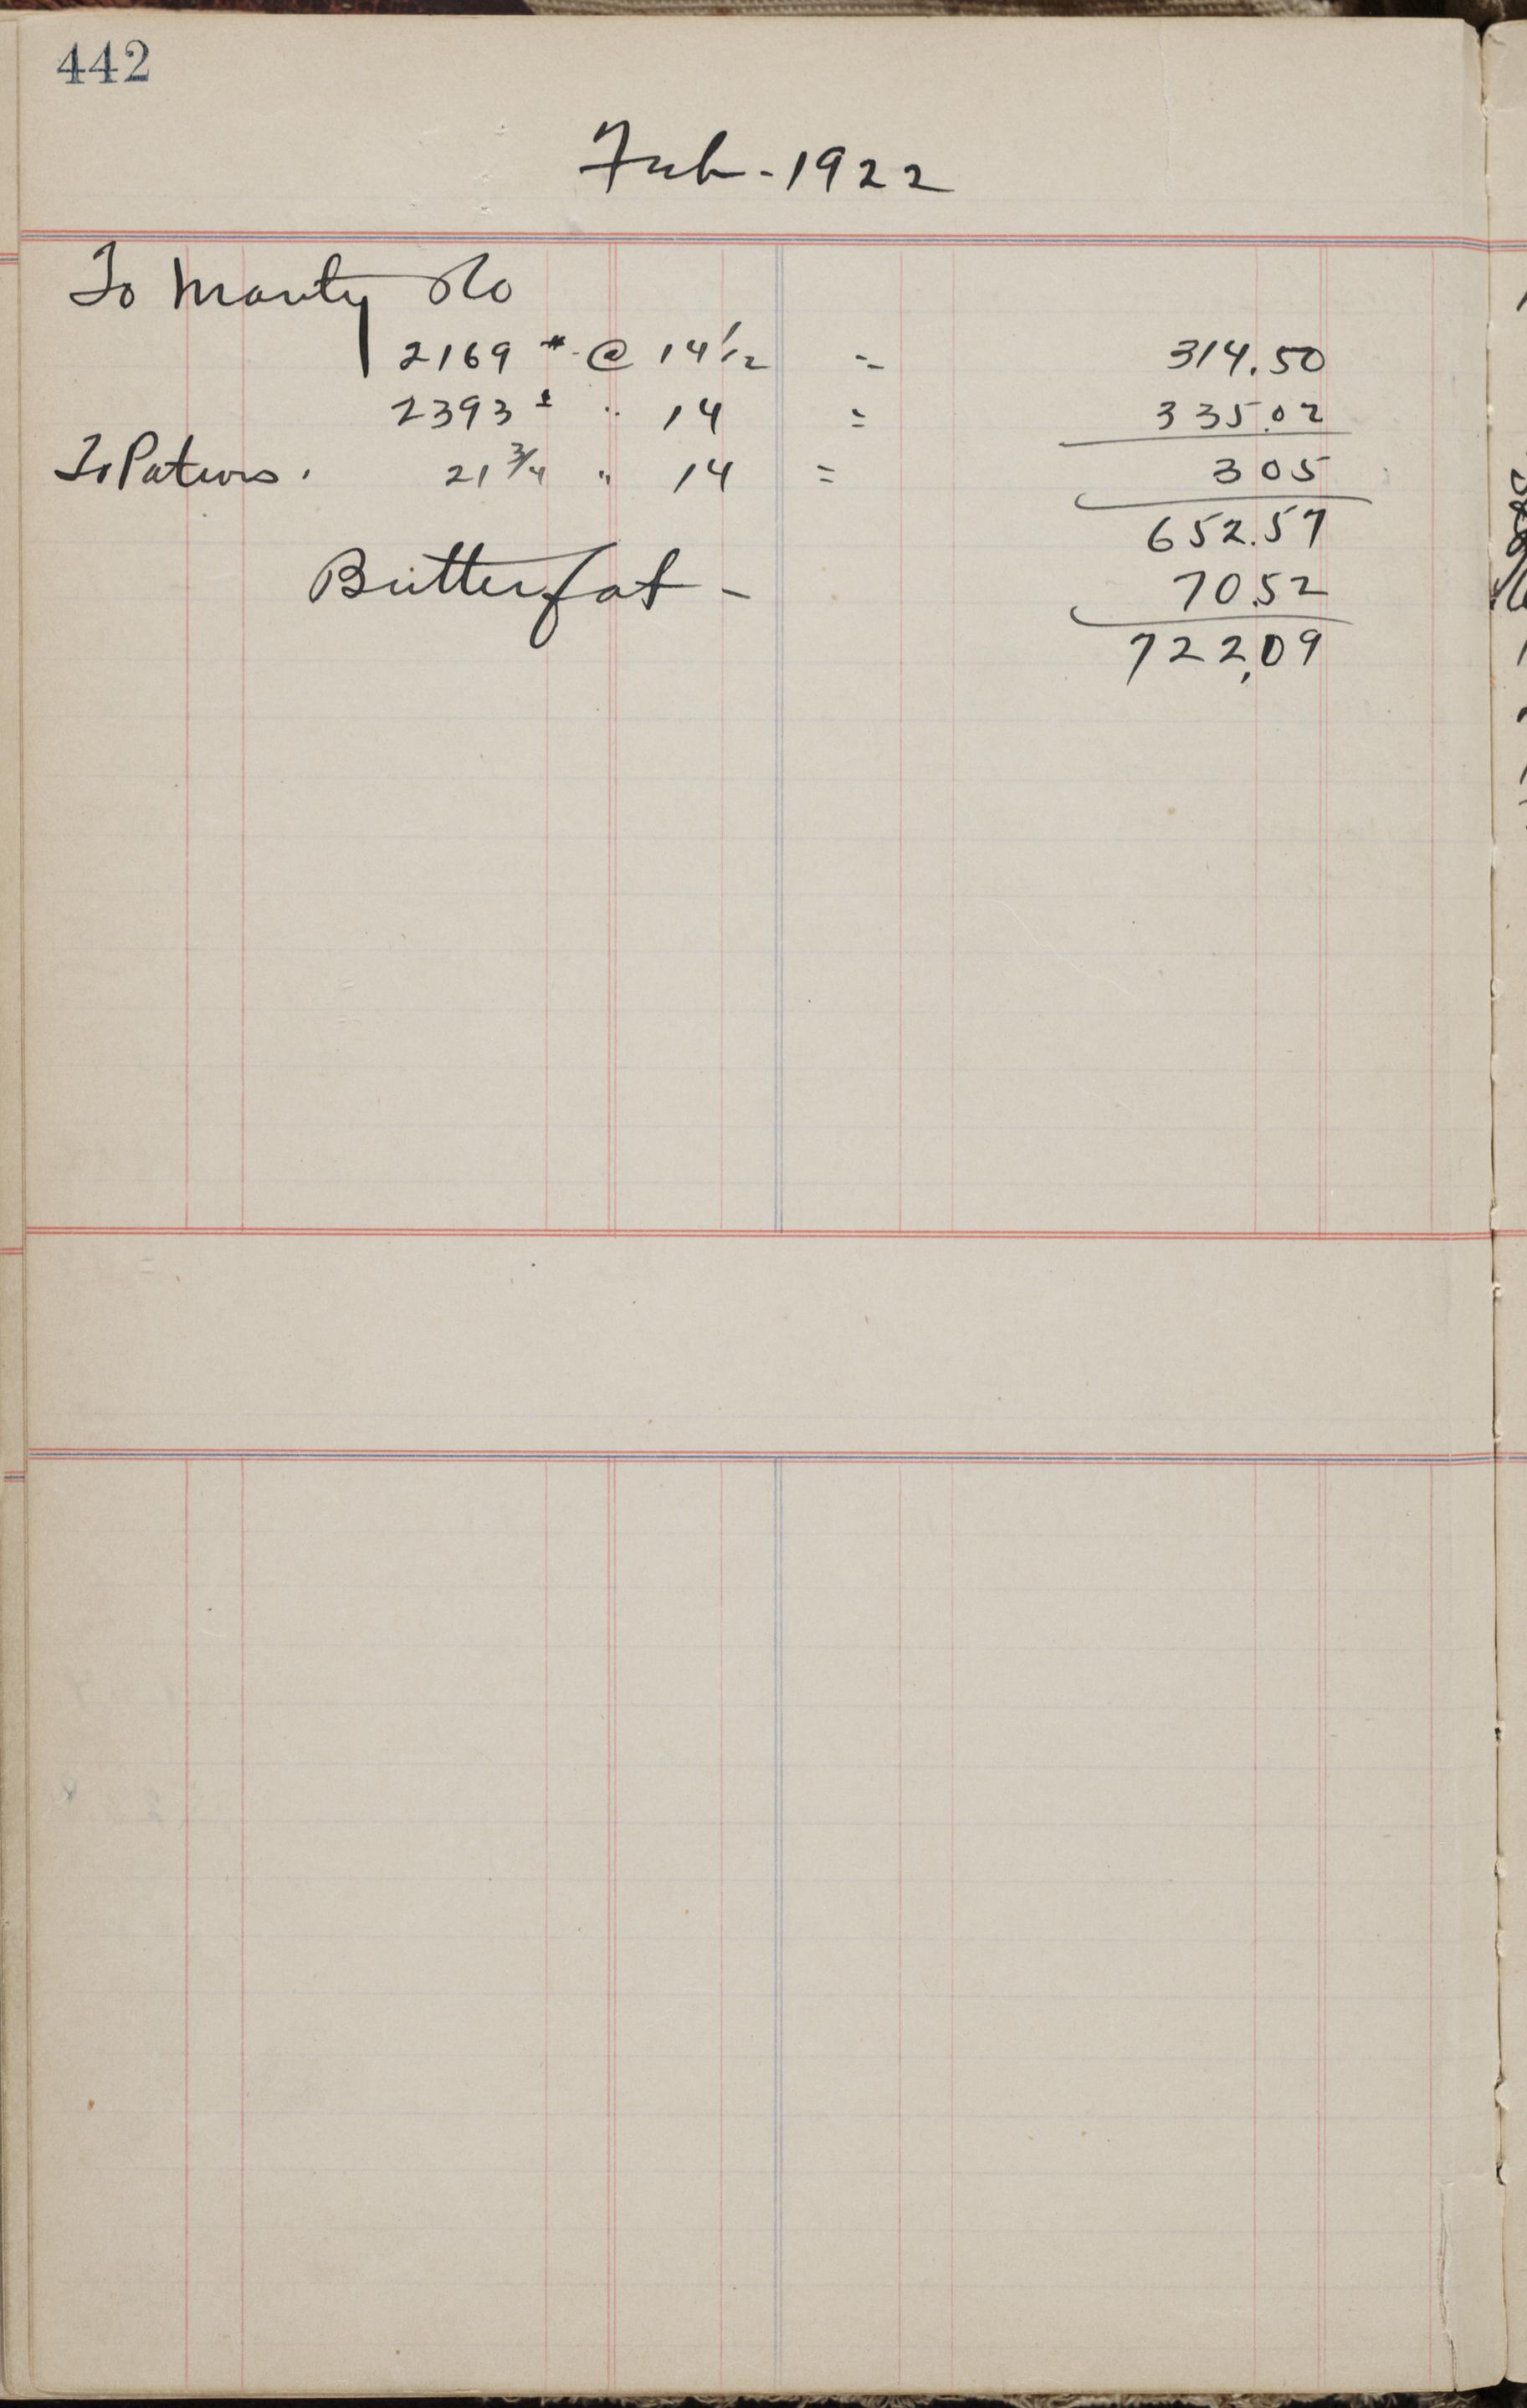 442
Feb - 1922
To Marty & Co
2169 # @ 14 1/2 = 314.50
2393 # " 14 = 335.02
To Patrons. 21 3/4 " 14 = 305
652.57
Butterfat - 70.52
722.09